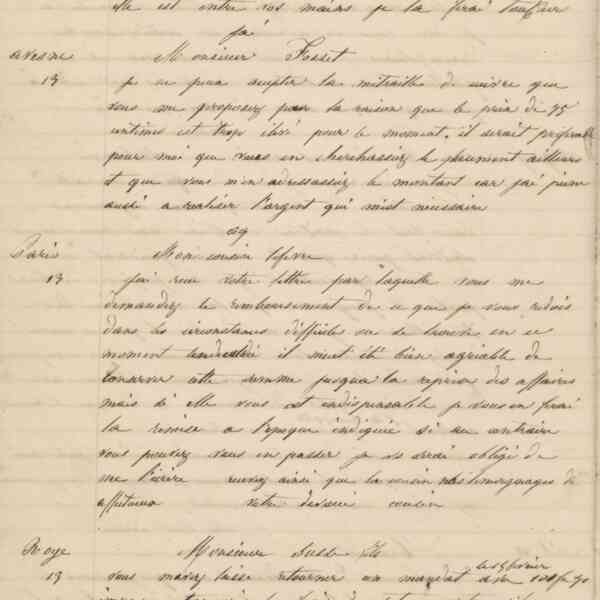 elle est entre vos mains je la ferai toucher
jai
avesne Monsieur Fosset
13 je ne peux accepter la mitraille de cuivre que
vous me proposez par la raison que le prix de 75
centimes est trop élevé pour le moment, il serait préférable
pour moi que vous en cherchassiez le placement ailleurs
et que vous m'en adressassiez le montant car j'ai peine
aussi a realiser l'argent qui m'est nécessaire
Paris Mon cousin lefevre
13 j'ai recu votre lettre par laquelle vous me
demandez le remboursement de ce que je vous redois
dans les circonstances difficiles ou se trouve en ce
moment il m'eut été bien agréable de
conserver cette somme jusqu'a la reprise des affaires
mais si elle vous est indispensable je vous en ferai
la remise a l'epoque indiquée si au contraire
vous pouvez vous en passer je vs serai obligé de
me l'ecrire recevez ainsi que la cousine nos temoignages de
affectueux votre devoué cousin
Roye Monsieur
le 5 fevrier
13 vous mavez laissé retourner un mandat de